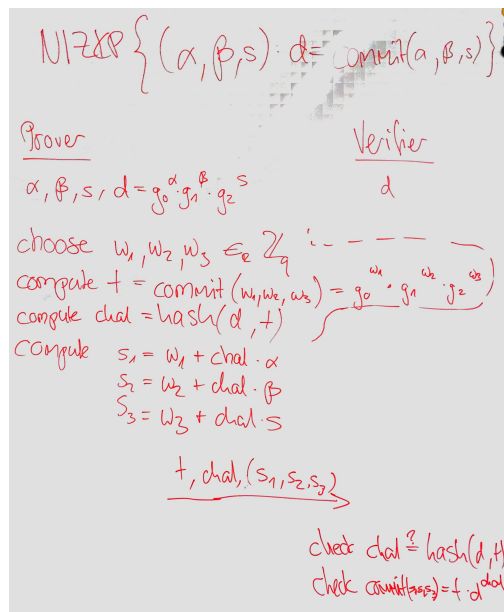 NIZKP { (α, β, s) : d = commit(α, β, s) }
Prover
Verifier
α, β, s, d = g₀^α · g₁^β · g₂^s
d
choose ω₁, ω₂, ω₃ ∈_R ℤ_q
compute t = commit(ω₁, ω₂, ω₃) = g₀^ω₁ · g₁^ω₂ · g₂^ω₃
compute chal = hash(d, t)
compute s₁ = ω₁ + chal · α
s₂ = ω₂ + chal · β
s₃ = ω₃ + chal · s
t, chal, (s₁, s₂, s₃)
check chal ≟ hash(d, t)
check commit(s₁,s₂,s₃) = t · d^chal